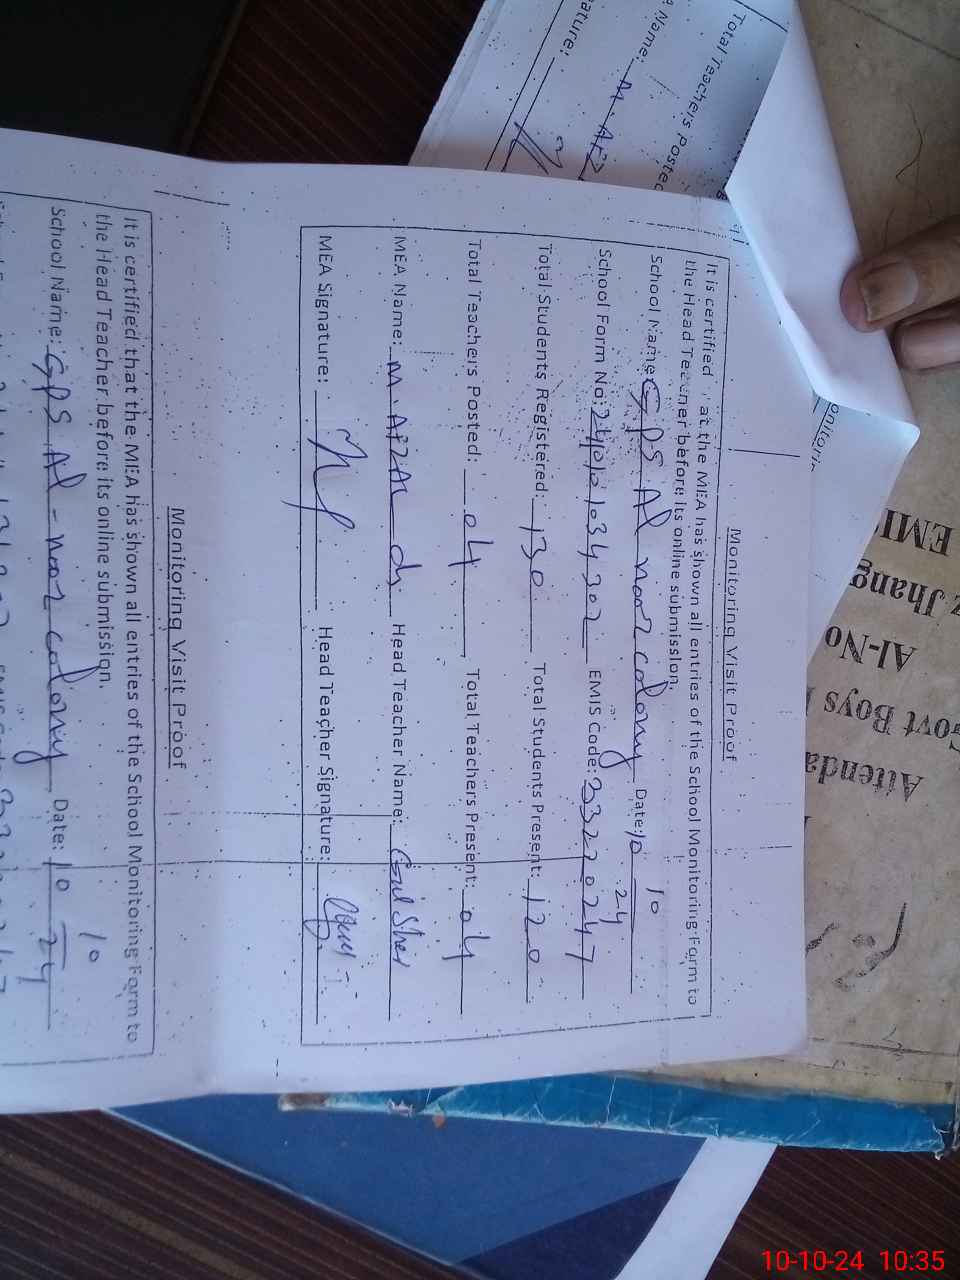 Monitoring Visit Proof
It is certified at the MEA has shown all entries of the School Monitoring Form to
the Head Teacher before its online submission.
School Name: GPS Al noor colony Date: 10 10 24
School Form No: EMIS Code: 33220247
Total Students Registered: 130 Total Students Present: 120
Total Teachers Posted: 04 Total Teachers Present: 04
MEA Name: M. Afzal Head Teacher Name: Gul Sher
MEA Signature: Head Teacher Signature:
Monitoring Visit Proof
It is certified that the MEA has shown all entries of the School Monitoring Form to
the Head Teacher before its online submission.
School Name: GPS Al-noor colony Date: 10 10 24
Total Teachers Posted
Name: M. Afz
ature:
onitori
Attenda
Govt Boys
Al-No
Jhang
EMIS
10-10-24 10:35